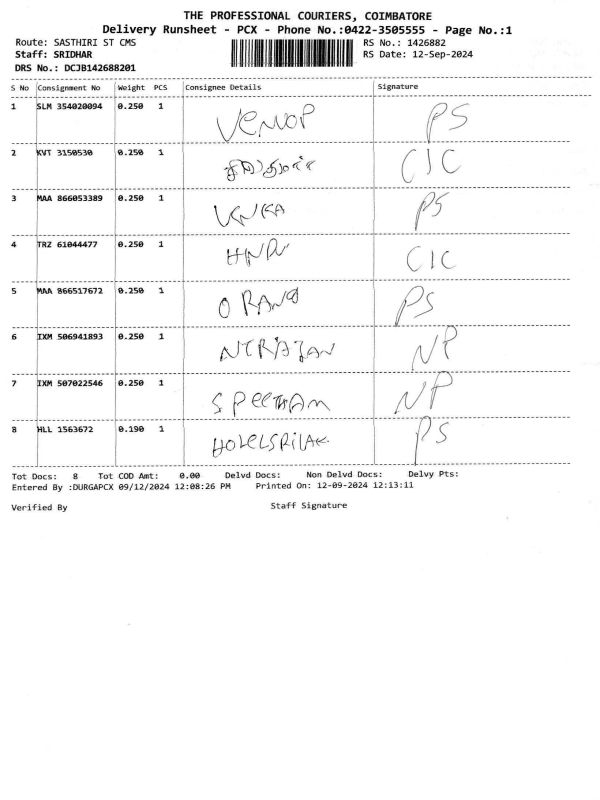 THE PROFESSIONAL COURIERS, COIMBATORE
Delivery Runsheet - PCX - Phone No.:0422-3505555 - Page No.:1
Route: SASTHIRI ST CMS RS No.: 1426882
Staff: SRIDHAR RS Date: 12-Sep-2024
DRS No.: DCJB142688201
S No Consignment No Weight PCS Consignee Details Signature
1 SLM 354020094 0.250 1 PS
2 KVT 3150530 0.250 1 CIC
3 MAA 866053389 0.250 1 PS
4 TRZ 61044477 0.250 1 CIC
5 MAA 866517672 0.250 1 ORANO PS
6 IXM 506941893 0.250 1 NIRAJAN NP
7 IXM 507022546 0.250 1 NP
8 HLL 1563672 0.190 1 PS
Tot Docs: 8 Tot COD Amt: 0.00 Delvd Docs: Non Delvd Docs: Delvy Pts:
Entered By :DURGAPCX 09/12/2024 12:08:26 PM Printed On: 12-09-2024 12:13:11
Verified By Staff Signature